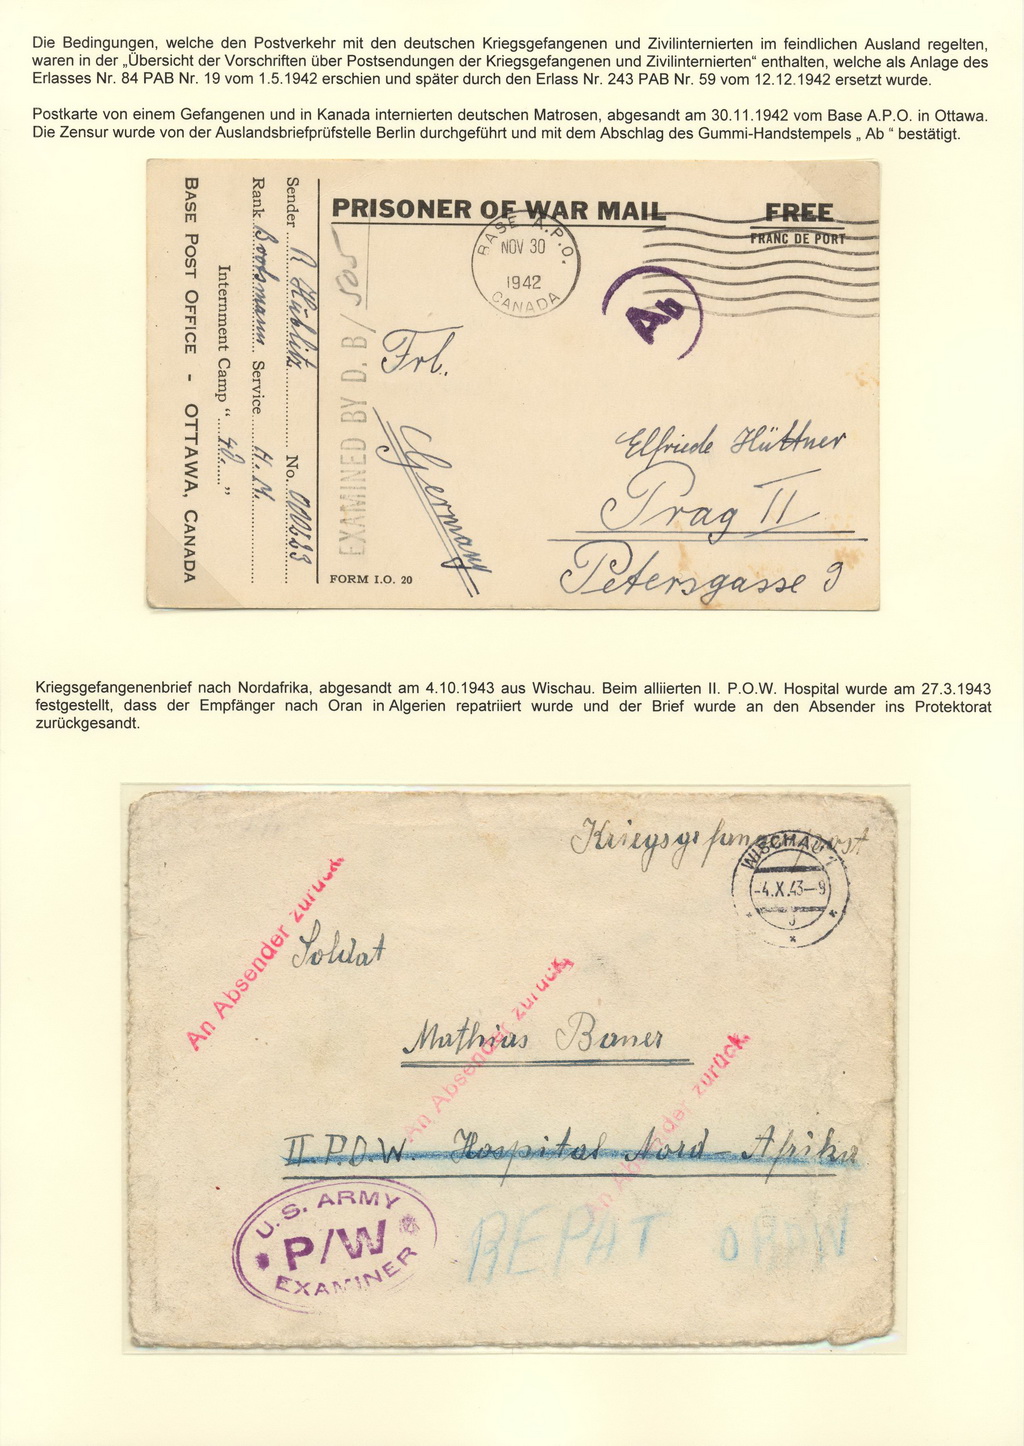 Die Bedingungen, welche den Postverkehr mit den deutschen Kriegsgefangenen und Zivilinternierten im feindlichen Ausland regelten,
waren in der „Übersicht der Vorschriften über Postsendungen der Kriegsgefangenen und Zivilinternierten“ enthalten, welche als Anlage des
Erlasses Nr. 84 PAB Nr. 19 vom 1.5.1942 erschien und später durch den Erlass Nr. 243 PAB Nr. 59 vom 12.12.1942 ersetzt wurde.
Postkarte von einem Gefangenen und in Kanada internierten deutschen Matrosen, abgesandt am 30.11.1942 vom Base A.P.O. in Ottawa.
Die Zensur wurde von der Auslandsbriefprüfstelle Berlin durchgeführt und mit dem Abschlag des Gummi-Handstempels „ Ab “ bestätigt.
PRISONER OF WAR MAIL
FREE
FRANC DE PORT
BASE A.P.O.
NOV 30
1942
CANADA
Ab
Frl.
Elfriede Hüttner
Prag II
Petersgasse 9
Germany
EXAMINED BY D.B/
FORM I.O. 20
Sender R. No.
Rank Bootsmann Service
Internment Camp “ 40 ”
BASE POST OFFICE - OTTAWA, CANADA
Kriegsgefangenenbrief nach Nordafrika, abgesandt am 4.10.1943 aus Wischau. Beim alliierten II. P.O.W. Hospital wurde am 27.3.1943
festgestellt, dass der Empfänger nach Oran in Algerien repatriiert wurde und der Brief wurde an den Absender ins Protektorat
zurückgesandt.
Kriegsgefangenenpost
WISCHAU 1
-4.X.43-9
An Absender zurück
Soldat
An Absender zurück
Mathias Bauer
An Absender zurück
II P.O.W. Hospital Nord-Afrika
U.S. ARMY
P/W
EXAMINER
REPAT ORAN